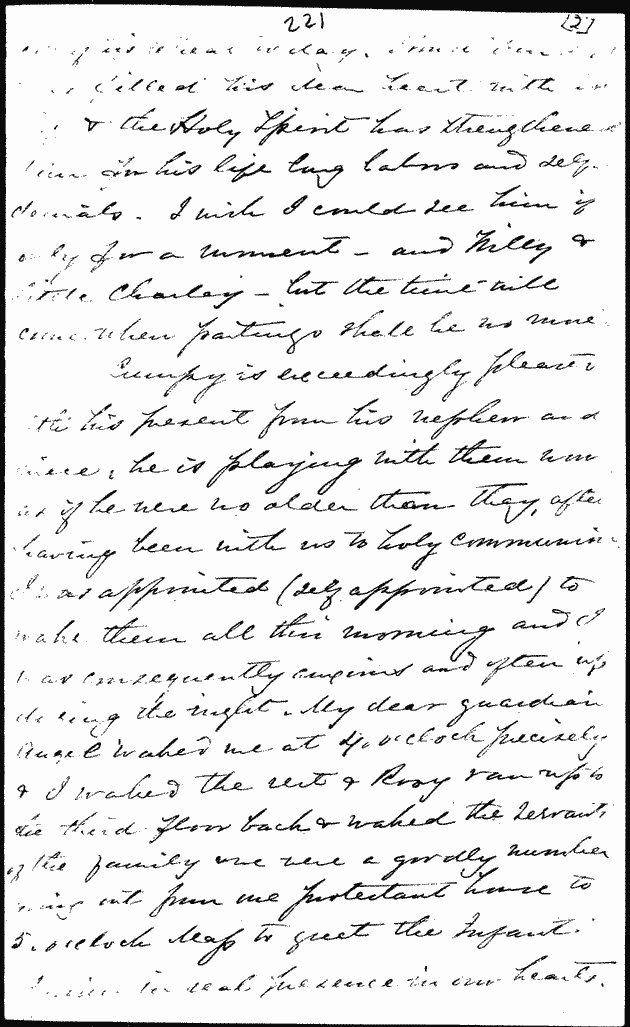 221 [2]
filled his dear heart with
& the Holy Spirit has strengthened
him for his life long labors and self
denials. I wish I could see him if
only for a moment – and Willy &
little Charley – but the time will
come when partings shall be no more.
is exceedingly pleased
with his present from his nephew and
niece; he is playing with them now
as if he were no older than they, after
having been with us to holy communion
I was appointed (self appointed) to
wake them all this morning and I
was consequently anxious and often up
during the night. My dear guardian
Angel waked me at 4 o'clock precisely
& I waked the rest & Rosy ran up to
the third floor back & waked the servants
of the family we were a goodly number
going out from one protestant house to
5. o'clock Mass to greet the Infant.
in real presence in our hearts.